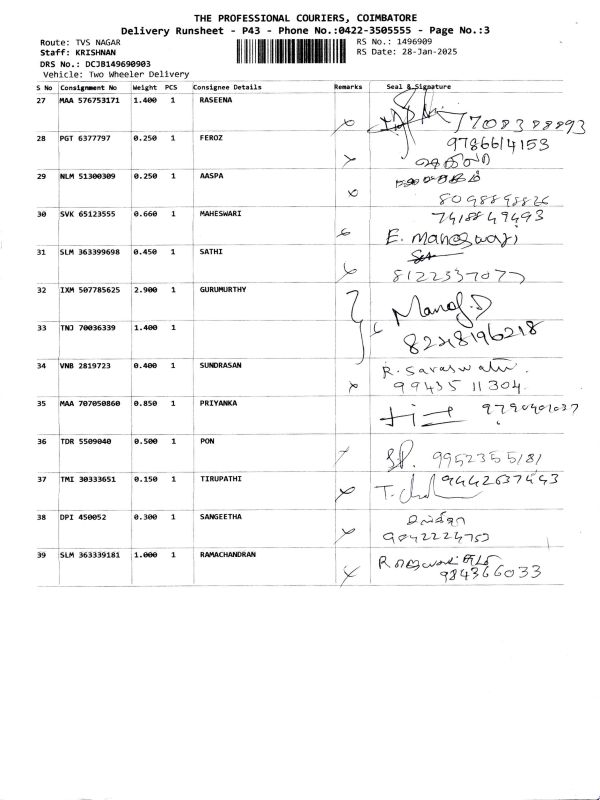 THE PROFESSIONAL COURIERS, COIMBATORE
Delivery Runsheet - P43 - Phone No.:0422-3505555 - Page No.:3
Route: TVS NAGAR RS No.: 1496909
Staff: KRISHNAN RS Date: 28-Jan-2025
DRS No.: DCJB149690903
Vehicle: Two Wheeler Delivery
S No Consignment No Weight PCS Consignee Details Remarks Seal & Signature
27 MAA 576753171 1.400 1 RASEENA
7708388893
28 PGT 6377797 0.250 1 FEROZ 9786614153
29 NLM 51300309 0.250 1 AASPA
8098898826
30 SVK 65123555 0.660 1 MAHESWARI 7418849493
E. Maheswari
31 SLM 363399698 0.450 1 SATHI
8122337077
32 IXM 507785625 2.900 1 GURUMURTHY Manoj.D
33 TNJ 70036339 1.400 1 8248196218
34 VNB 2819723 0.400 1 SUNDRASAN R. Saraswathi
99435 11304
35 MAA 707050860 0.850 1 PRIYANKA 9790401037
36 TDR 5509040 0.500 1 PON
9952355181
37 TMI 30333651 0.150 1 TIRUPATHI 9442637443
38 DPI 450052 0.300 1 SANGEETHA
9042224752
39 SLM 363339181 1.000 1 RAMACHANDRAN
984366033